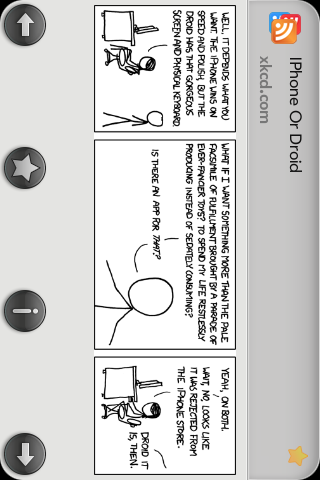 IPhone Or Droid
xkcd.com
WELL, IT DEPENDS WHAT YOU
WANT. THE IPHONE WINS ON
SPEED AND POLISH, BUT THE
DROID HAS THAT GORGEOUS
SCREEN AND PHYSICAL KEYBOARD.
WHAT IF I WANT SOMETHING MORE THAN THE PALE
FACSIMILE OF FULFILLMENT BROUGHT BY A PARADE OF
EVER-FANCIER TOYS? TO SPEND MY LIFE RESTLESSLY
PRODUCING INSTEAD OF SEDATELY CONSUMING?
IS THERE AN APP FOR THAT?
YEAH, ON BOTH.
WAIT, NO, LOOKS LIKE
IT WAS REJECTED FROM
THE IPHONE STORE.
DROID IT
IS, THEN.